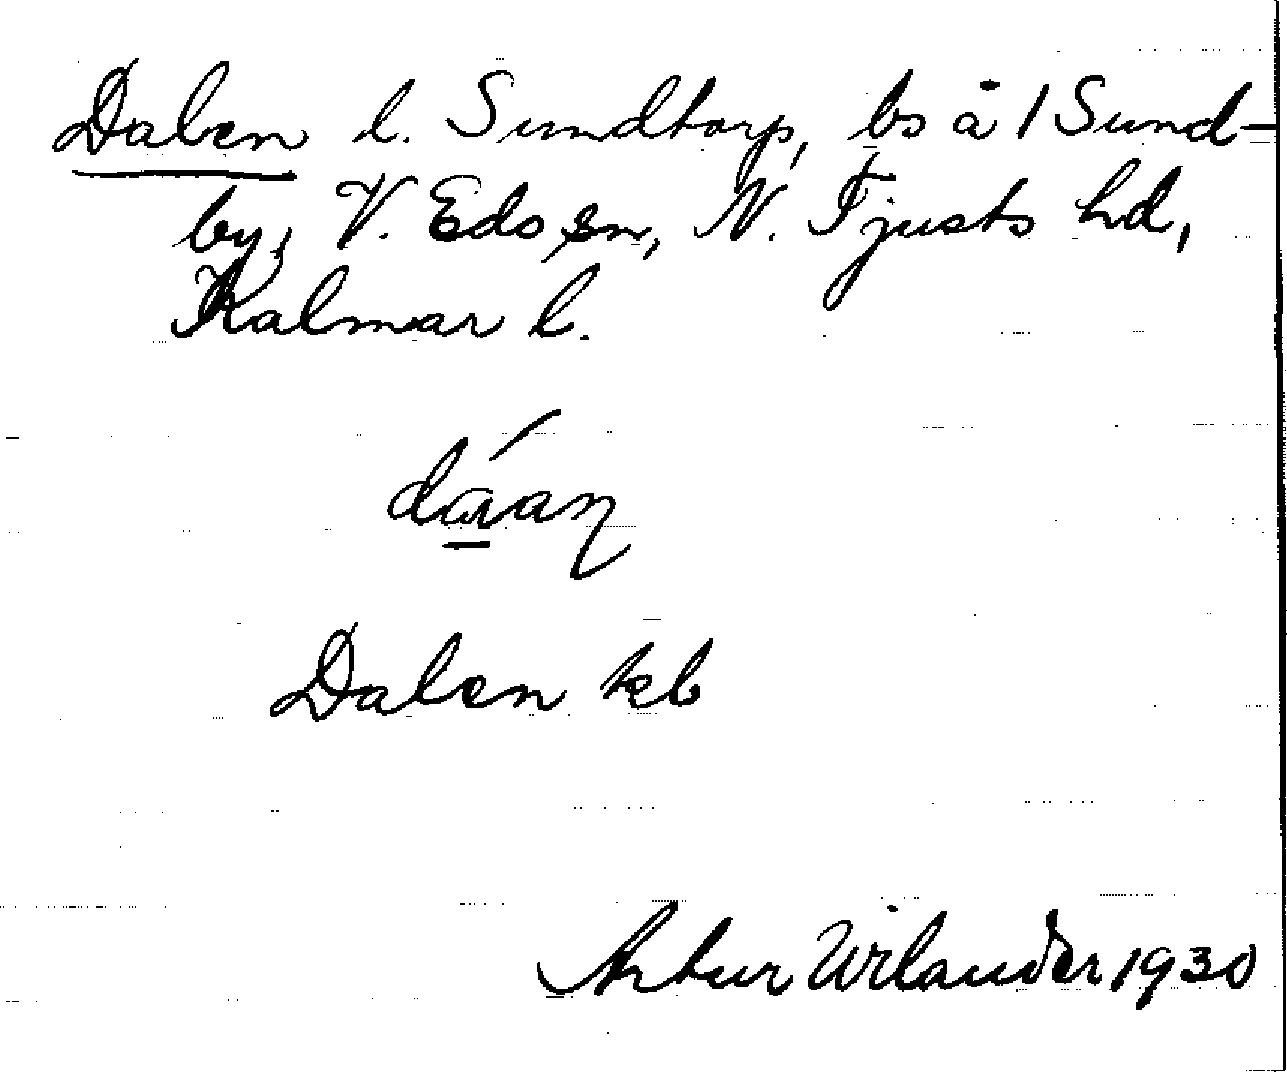 Dalen l. Sundtorp, bs å 1 Sund-
by, V. Eds sn, N. Tjusts hd,
Kalmar l.
Dalen kb
Artur Wilander 1930